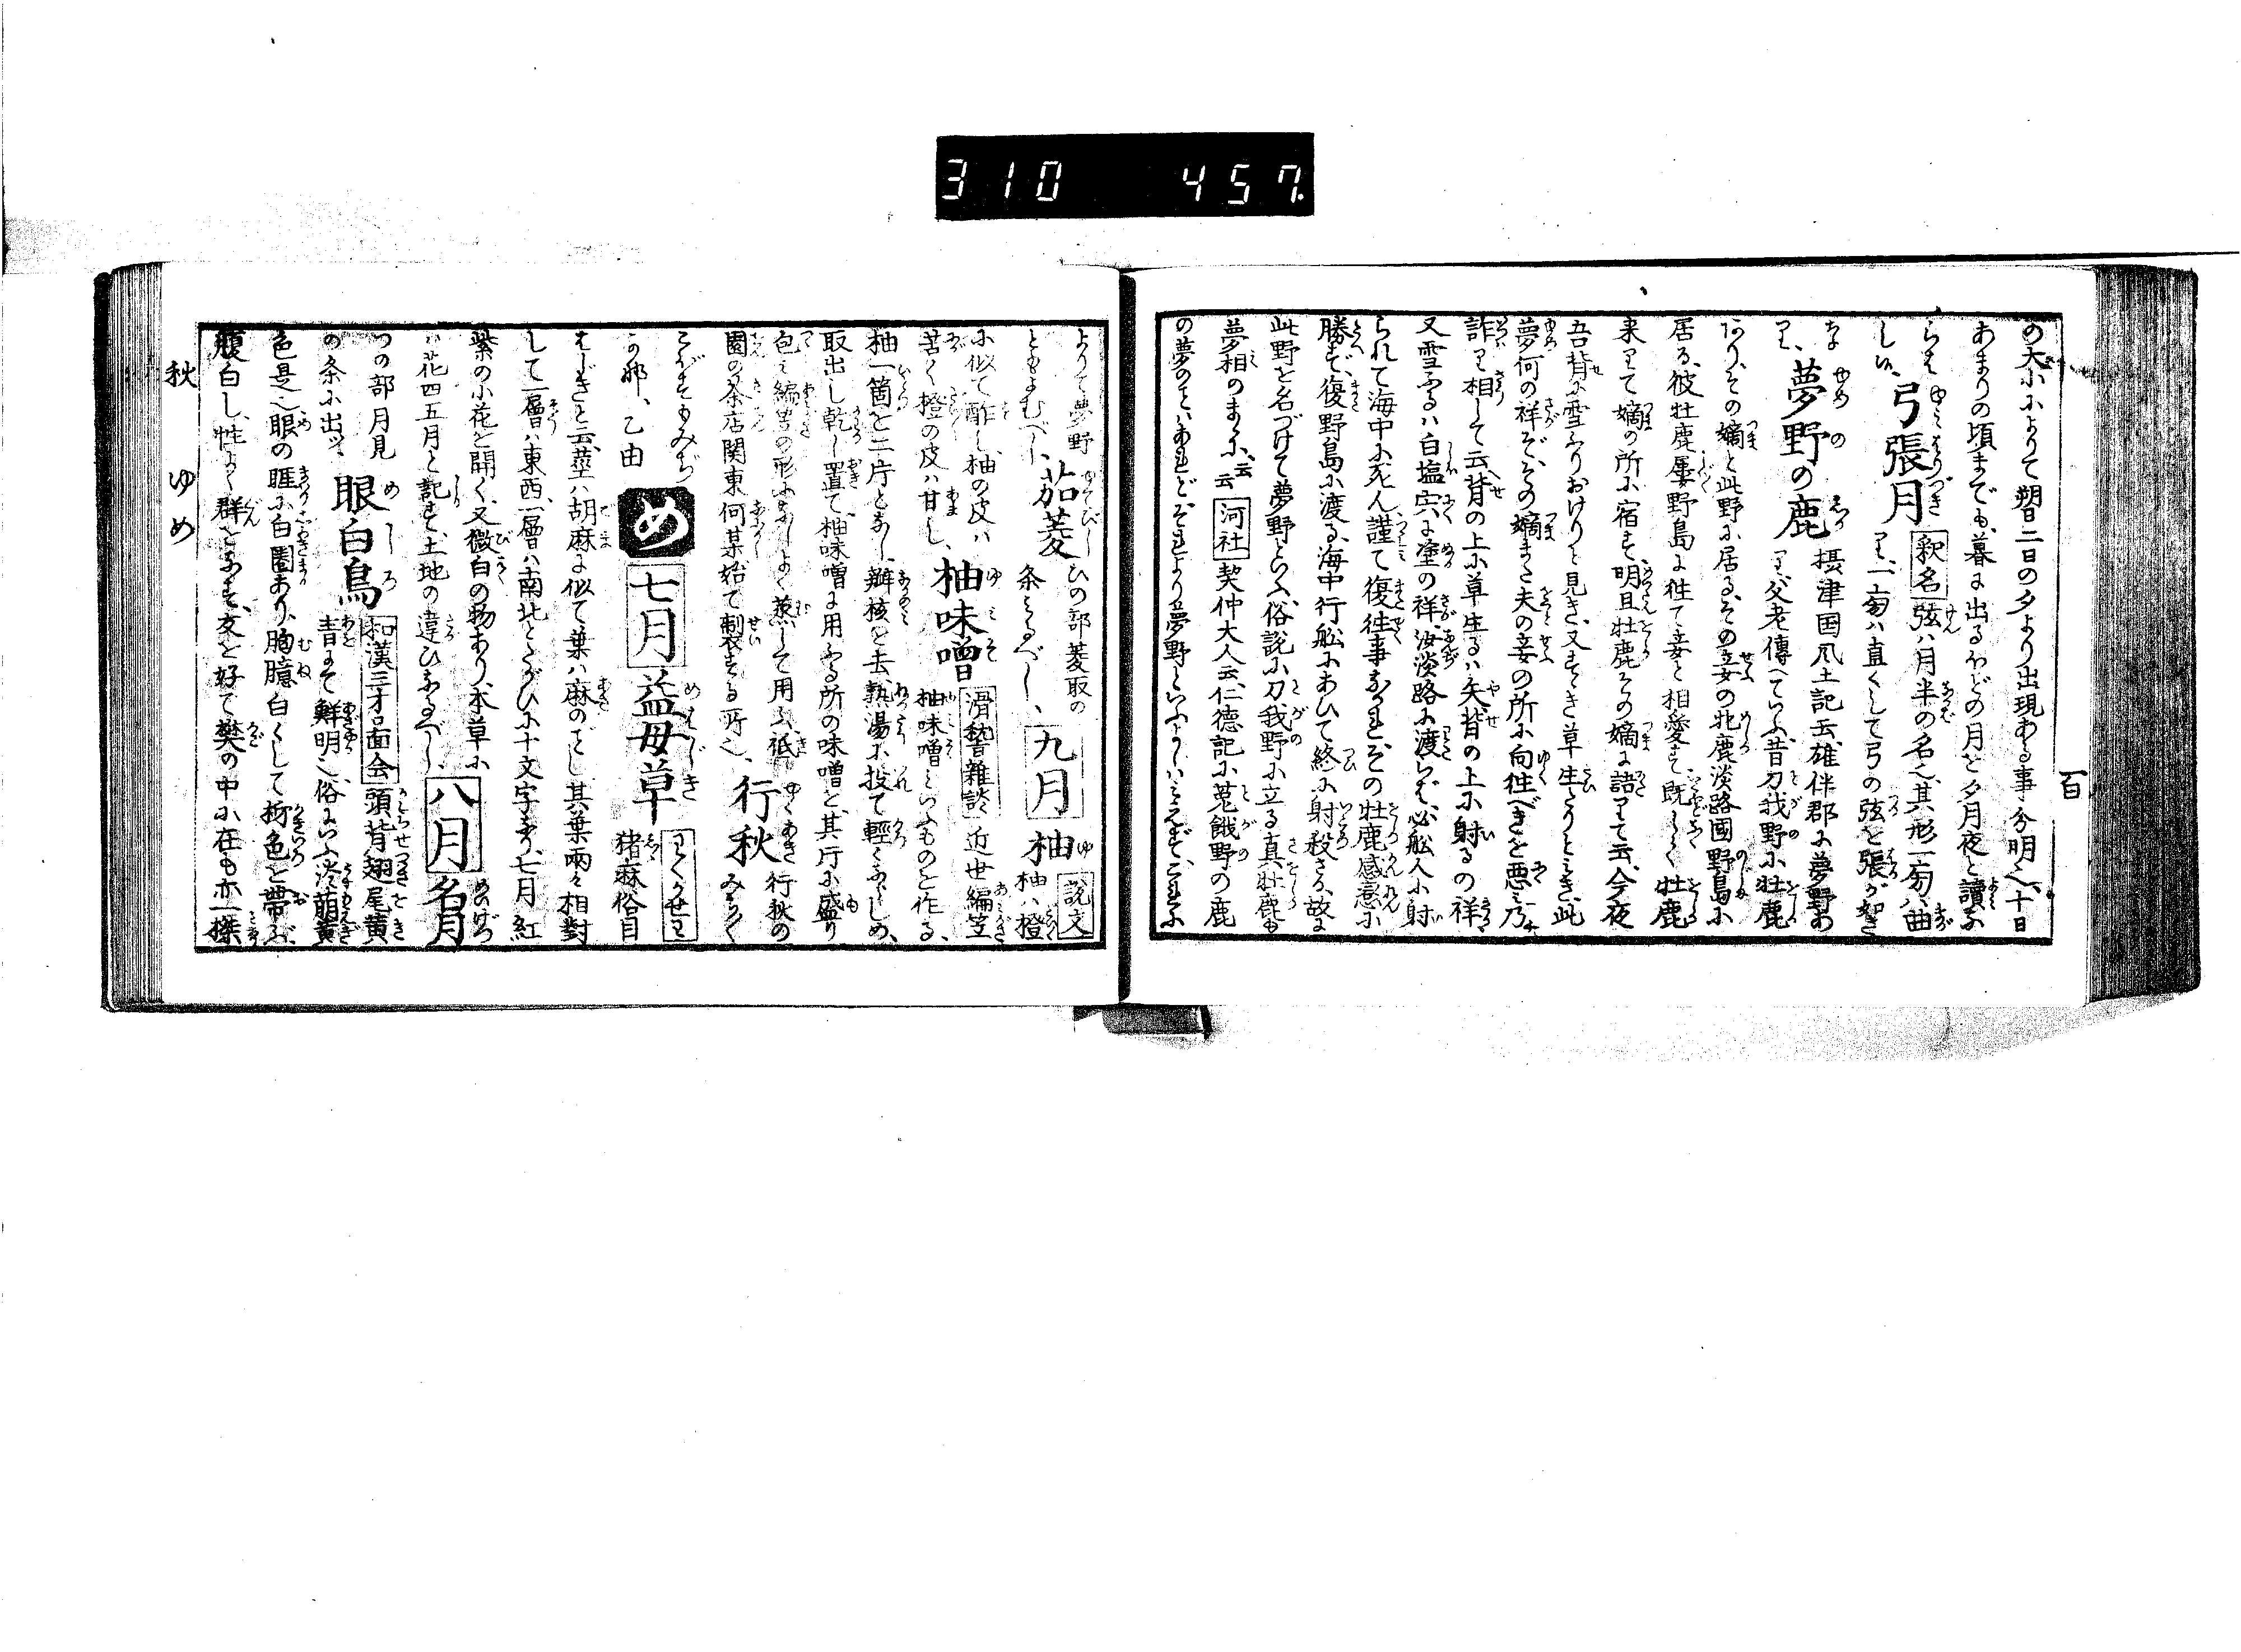 310 457.
百
の大小によりて朔日二日の夕より出現ある事分明也、十日
あまりの頃までも、暮に出るほどの月を夕月夜と讀な
らはし
弓張月 釈名 弦ハ月半の名也、其形一旁ハ曲
り、一旁ハ直くして弓の弦を張が如き
夢野の鹿 摂津国風土記云雄伴郡に夢野あ
り、父老傳へていふ、昔刀我野に牡鹿
ありその嫡と此野に居る、その妾の牝鹿淡路國野島に
居る、彼牡鹿屡野島に往て妾と相愛す、既にして牡鹿
来りて嫡の所に宿す、明旦牡鹿その嫡に語りて云、今夜
吾背に雪ふりおけりと見き、又すゝき草生たりと見き、此
夢何の祥ぞ、その嫡また夫の妾の所に向往べきを悪み乃
詐り相して云、背の上に草生るハ矢背の上に射るの祥
又雪ふるハ白塩宍に塗の祥、汝淡路に渡らバ、必舩人に射
られて海中に死ん謹て復往事なかれとその牡鹿感恋に
勝ず、復野島に渡る、海中行舩にあひて終に射殺さる、故に
此野を名づけて夢野といふ、俗説に刀我野に立る真牡鹿も
夢相のまゝに、云云 河社 契仲大人云、仁徳記に菟餓野の鹿
の夢のことハあれどそれより夢野といふよしハみえず、これに
よりて夢野
ともよむべし、
茄菱 ひの部菱取の
条にみるべし、
九月 柚 説文 柚ハ橙
に似て酢し、柚の皮ハ
苦く橙の皮ハ甘し、
柚味噌 滑稽雑談 近世編笠
柚味噌といふものを作る、
柚一箇を二片となし、瓣核を去熱湯に投て軽くふらしめ、
取出し乾し置て、柚味噌に用ふる所の味噌を、其片に盛り
包ミ編笠の形になしよく蒸して用ふ、祇
園の茶店関東何某始て製する所也、
行秋 行秋の
こがすもみぢ
乙由
め
七月 益母草
猪麻俗目
はじきと云、茎ハ胡麻に似て葉ハ麻のごとし其葉両々相對
して一層ハ東西、一層ハ南北とたがひに十文字なり、七月紅
紫の小花を開く、又微白の物あり、本草に
ハ花四五月と記す、土地の違ひなるべし、
八月 名月
つの部月見
の条に出ツ、
眼白鳥 和漢三才図会 頭背翅尾黄
青にて鮮明也、俗にいふ浅萌黄
色是也眼の匪に白圏あり、胸臆白くして柹色を帯ぶ
腹白し、性よく群をなす、友を好で樊の中に在も亦一擽
秋 ゆ め